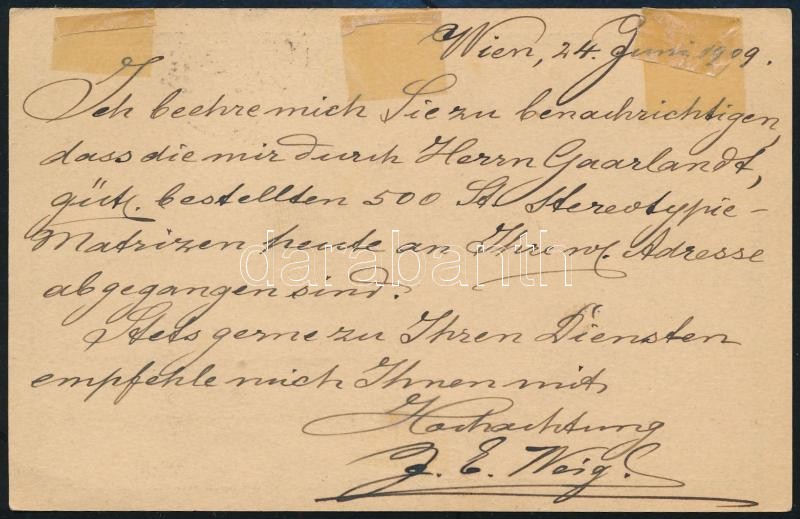 Wien, 24. Juni 1909.
Ich beehre mich Sie zu benachrichtigen,
dass die mir durch Herrn Gaarlandt,
güt. bestellten 500 St. Stereotypie-
Matrizen heute an Ihre w. Adresse
abgegangen sind.
Stets gerne zu Ihren Diensten
empfehle mich Ihnen mit
Hochachtung
J. E. Weig.
darabanth